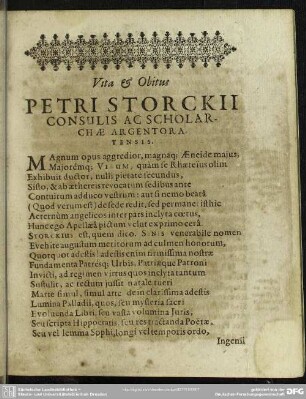 Vita & Obitus
PETRI STORCKII
CONSULIS AC SCHOLAR-
CHÆ ARGENTORA-
TENSIS.
MAgnum opus aggredior, magnaq; Æneide maius,
Majorémq; VIRUM, quàm se Rhœteius olim
Exhibuit ductor, nulli pietate secundus,
Sisto, & ab æthereis revocatum sedibus ante
Contuitum adduco vestrum: aut si nemo beatâ
(Quod verum est) de sede redit, sed permanet isthic
Aeternùm angelicos inter pars inclyta cœtus,
Hunc ego Apelleâ pictum velut exprimo cerâ.
STORCKIUS est, quem dico. SIBI venerabile nomen
Evehit augustum meritorum ad culmen honorum,
Quotquot adestis: adestis enim firmissima nostræ
Fundamenta Patreiq; Urbis, Patriæque Patroni
Invicti, ad regimen virtus quos inclyta tantum
Sustulit, ac rectum jussit natale tueri
Marte simul, simul arte
Lumina Palladii, quos, seu mysteria sacri
Evolvenda Libri, seu vasta volumina Juris,
Seu scripta Hippocratis, seu res tractanda Poëtæ,
Seu vel lemma Sophi, longi vel temporis ordo,
Ingenii